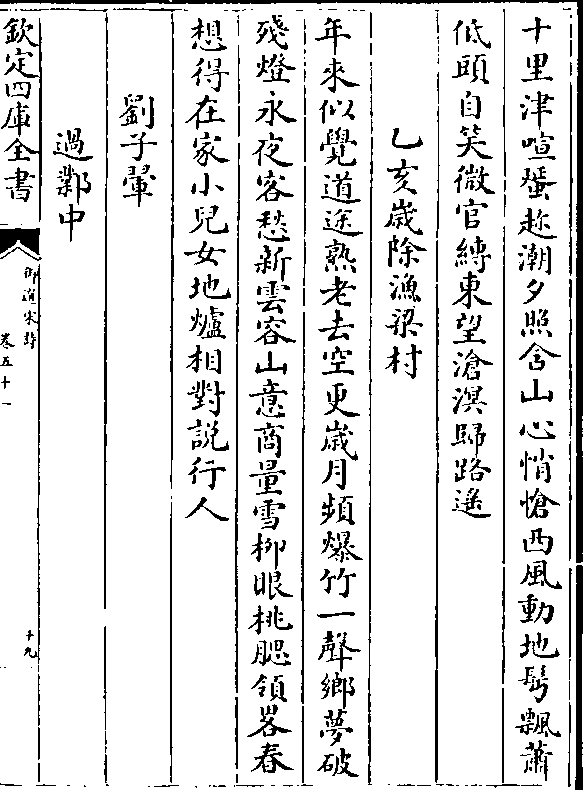 十里津喧蜑趂潮夕照含山心悄愴西風動地髩飄蕭
低頭自笑微官縛東望滄溟歸路遙
乙亥歲除漁梁村
年來似覺道途熟老去空更歲月頻爆竹一聲鄉夢破
殘燈永夜客愁新雲容山意商量雪柳眼桃腮領畧春
想得在家小兒女地爐相對説行人
劉子翬
過鄴中
欽定四庫全書
御選宋詩
卷五十一
十九